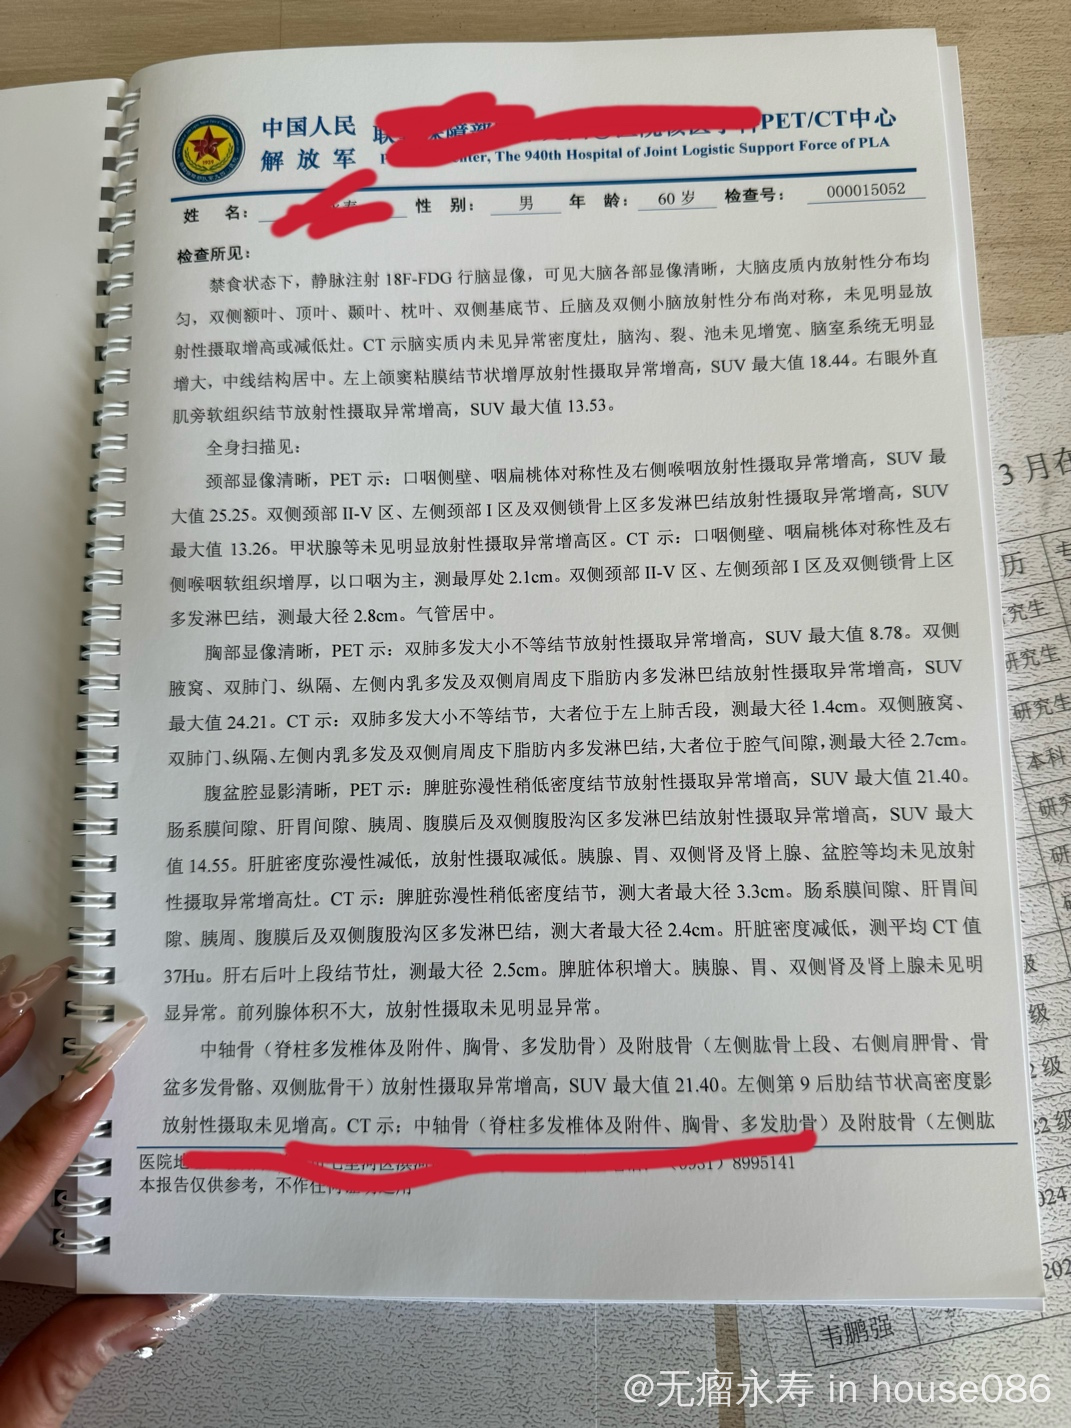 中国人民
解放军
PET/CT中心
The 940th Hospital of Joint Logistic Support Force of PLA
姓 名： 性 别： 男 年 龄： 60 岁 检查号： 000015052
检查所见：
禁食状态下，静脉注射 18F-FDG 行脑显像，可见大脑各部显像清晰，大脑皮质内放射性分布均
匀，双侧额叶、顶叶、颞叶、枕叶、双侧基底节、丘脑及双侧小脑放射性分布尚对称，未见明显放
射性摄取增高或减低灶。CT 示脑实质内未见异常密度灶，脑沟、裂、池未见增宽、脑室系统无明显
增大，中线结构居中。左上颌窦粘膜结节状增厚放射性摄取异常增高，SUV 最大值 18.44。右眼外直
肌旁软组织结节放射性摄取异常增高，SUV 最大值 13.53。
全身扫描见：
颈部显像清晰，PET 示：口咽侧壁、咽扁桃体对称性及右侧喉咽放射性摄取异常增高，SUV 最
大值 25.25。双侧颈部 II-V 区、左侧颈部 I 区及双侧锁骨上区多发淋巴结放射性摄取异常增高，SUV
最大值 13.26。甲状腺等未见明显放射性摄取异常增高区。CT 示：口咽侧壁、咽扁桃体对称性及右
侧喉咽软组织增厚，以口咽为主，测最厚处 2.1cm。双侧颈部 II-V 区、左侧颈部 I 区及双侧锁骨上区
多发淋巴结，测最大径 2.8cm。气管居中。
胸部显像清晰，PET 示：双肺多发大小不等结节放射性摄取异常增高，SUV 最大值 8.78。双侧
腋窝、双肺门、纵隔、左侧内乳多发及双侧肩周皮下脂肪内多发淋巴结放射性摄取异常增高，SUV
最大值 24.21。CT 示：双肺多发大小不等结节，大者位于左上肺舌段，测最大径 1.4cm。双侧腋窝、
双肺门、纵隔、左侧内乳多发及双侧肩周皮下脂肪内多发淋巴结，大者位于腔气间隙，测最大径 2.7cm。
腹盆腔显影清晰，PET 示：脾脏弥漫性稍低密度结节放射性摄取异常增高，SUV 最大值 21.40。
肠系膜间隙、肝胃间隙、胰周、腹膜后及双侧腹股沟区多发淋巴结放射性摄取异常增高，SUV 最大
值 14.55。肝脏密度弥漫性减低，放射性摄取减低。胰腺、胃、双侧肾及肾上腺、盆腔等均未见放射
性摄取异常增高灶。CT 示：脾脏弥漫性稍低密度结节，测大者最大径 3.3cm。肠系膜间隙、肝胃间
隙、胰周、腹膜后及双侧腹股沟区多发淋巴结，测大者最大径 2.4cm。肝脏密度减低，测平均 CT 值
37Hu。肝右后叶上段结节灶，测最大径 2.5cm。脾脏体积增大。胰腺、胃、双侧肾及肾上腺未见明
显异常。前列腺体积不大，放射性摄取未见明显异常。
中轴骨（脊柱多发椎体及附件、胸骨、多发肋骨）及附肢骨（左侧肱骨上段、右侧肩胛骨、骨
盆多发骨骼、双侧肱骨干）放射性摄取异常增高，SUV 最大值 21.40。左侧第 9 后肋结节状高密度影
放射性摄取未见增高。CT 示：中轴骨（脊柱多发椎体及附件、胸骨、多发肋骨）及附肢骨（左侧肱
医院地
8995141
本报告仅供参考，不作任何
3 月在
历
研究生
研究生
研究生
本科
级
2 级
22 级
韦鹏强
@无瘤永寿 in house086